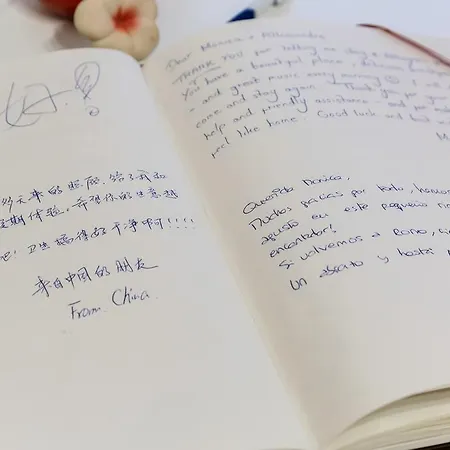 多天来的照顾. 给了我们
假期体验, 希望你的生意越
吧! 卫生搞得好干净啊!!!!
来自中国的朋友
From. China.
Dear Monica + Alessandro
THANK YOU for letting me stay
You have a beautiful place,
and great music every morning ☺ I will
come and stay again. Thank you for your
help and friendly assistance - and
feel like home. Good luck and
Querida Monica,
Muchas gracias por todo, hemos
agusto en este pequeño
encantador!
Si volvemos a Roma,
Un abrazo y hasta